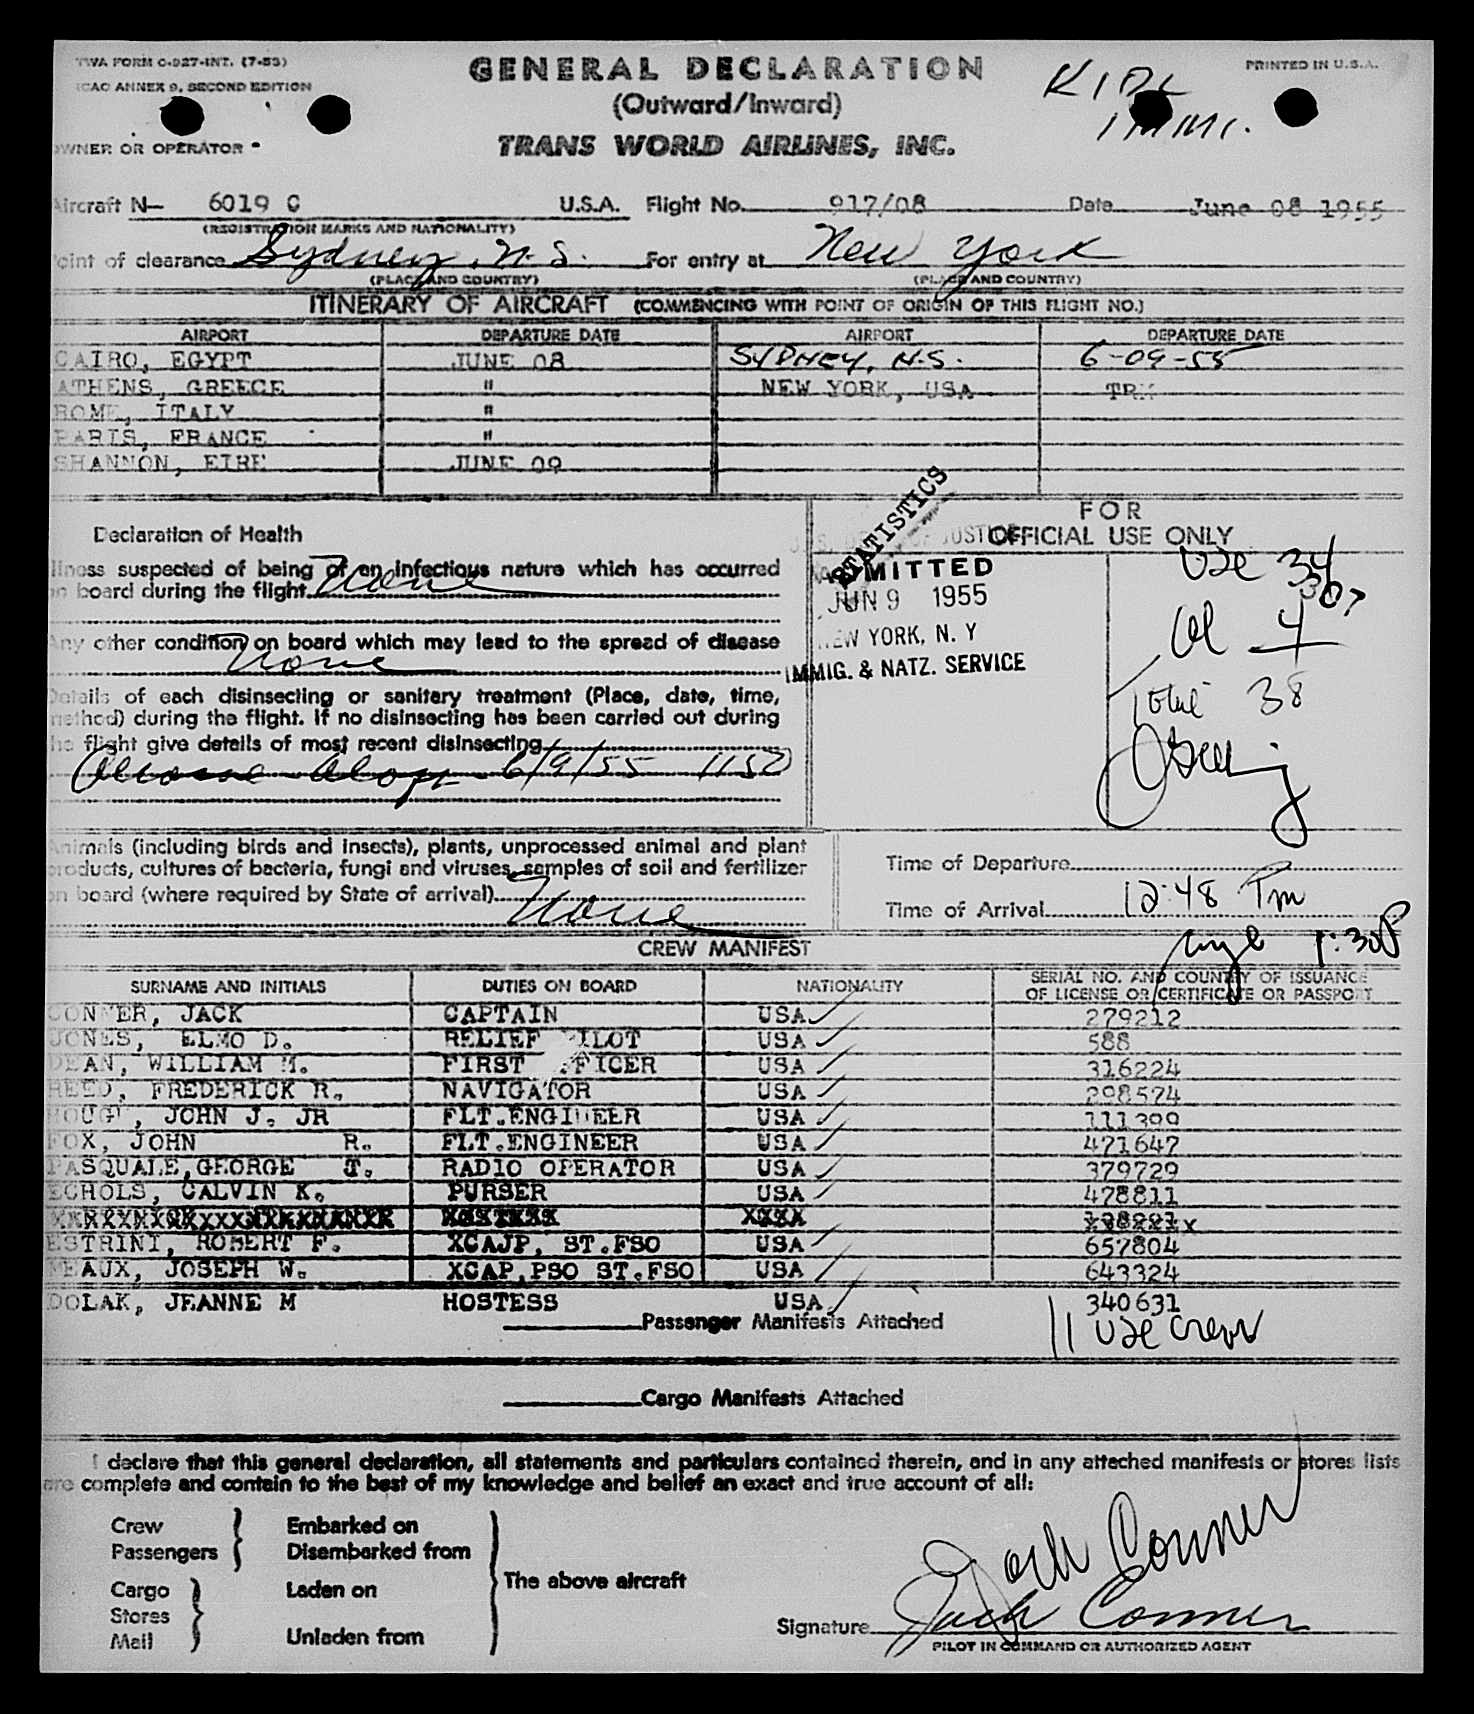 TWA FORM C-927-INT. (7-53)
ICAO ANNEX 9, SECOND EDITION
PRINTED IN U.S.A.
GENERAL DECLARATION
(Outward/Inward)
TRANS WORLD AIRLINES, INC.
OWNER OR OPERATOR
Aircraft N— 6019 C U.S.A. Flight No. 917/08 Date June 08 1955
(REGISTRATION MARKS AND NATIONALITY)
Point of clearance Sydney, N.S. For entry at New York
(PLACE AND COUNTRY) (PLACE AND COUNTRY)
ITINERARY OF AIRCRAFT (COMMENCING WITH POINT OF ORIGIN OF THIS FLIGHT NO.)
AIRPORT DEPARTURE DATE AIRPORT DEPARTURE DATE
CAIRO, EGYPT JUNE 08 SYDNEY, N.S. 6-09-55
ATHENS, GREECE " NEW YORK, USA TRM
ROME, ITALY "
PARIS, FRANCE "
SHANNON, EIRE JUNE 09
Declaration of Health
Illness suspected of being of an infectious nature which has occurred
on board during the flight None
Any other condition on board which may lead to the spread of disease
None
Details of each disinsecting or sanitary treatment (Place, date, time,
method) during the flight. If no disinsecting has been carried out during
the flight give details of most recent disinsecting
6/9/55 1150
STATISTICS
ADMITTED
JUN 9 1955
NEW YORK, N. Y
IMMIG. & NATZ. SERVICE
FOR
OFFICIAL USE ONLY
USC 34
307
Al 4
Total 38
Animals (including birds and insects), plants, unprocessed animal and plant
products, cultures of bacteria, fungi and viruses, samples of soil and fertilizer
on board (where required by State of arrival) None
Time of Departure
Time of Arrival 12:48 Pm
1:30P
CREW MANIFEST
SURNAME AND INITIALS DUTIES ON BOARD NATIONALITY SERIAL NO. AND COUNTRY OF ISSUANCE
OF LICENSE OR CERTIFICATE OR PASSPORT
CONNER, JACK CAPTAIN USA 279212
JONES, ELMO D. RELIEF PILOT USA 588
DEAN, WILLIAM M. FIRST OFFICER USA 316224
REED, FREDERICK R. NAVIGATOR USA 298574
HOUGH, JOHN J. JR FLT.ENGINEER USA 111399
FOX, JOHN R. FLT.ENGINEER USA 471647
PASQUALE,GEORGE T. RADIO OPERATOR USA 379729
ECHOLS, CALVIN K. PURSER USA 478811
ESTRINI, ROBERT F. XCAJP, ST.FSO USA 657804
MEAUX, JOSEPH W. XCAP,PSO ST.FSO USA 643324
DOLAK, JEANNE M HOSTESS USA 340631
Passenger Manifests Attached 11 USC Crew
Cargo Manifests Attached
I declare that this general declaration, all statements and particulars contained therein, and in any attached manifests or stores lists
are complete and contain to the best of my knowledge and belief an exact and true account of all:
Crew
Passengers
Embarked on
Disembarked from
Cargo
Stores
Mail
Laden on
Unladen from
The above aircraft
Jack Conner
Signature Jack Conner
PILOT IN COMMAND OR AUTHORIZED AGENT